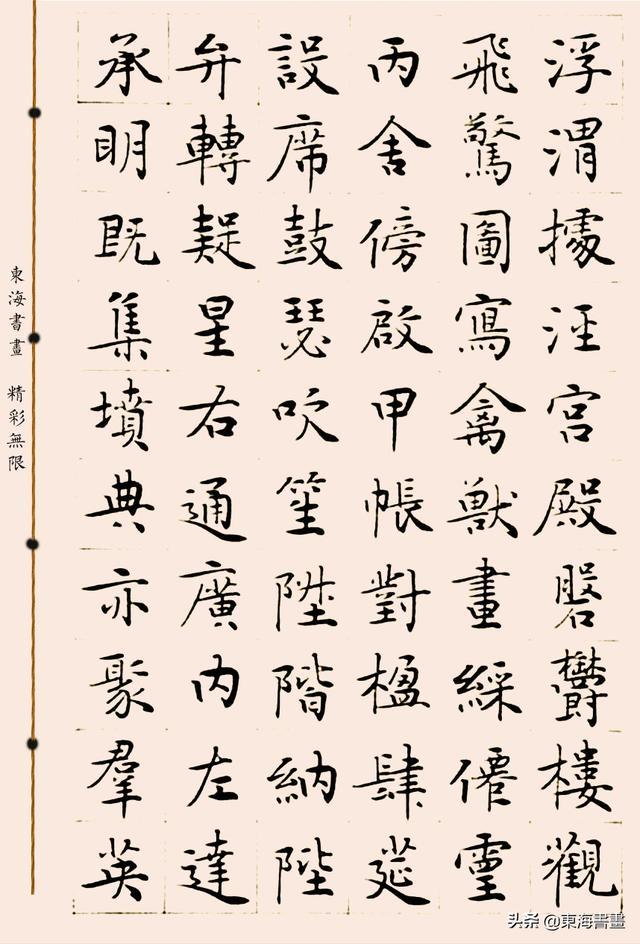 浮渭據涇宮殿磐鬱樓觀
飛驚圖寫禽獸畫綵僊靈
丙舍傍啟甲帳對楹肆筵
設席鼓瑟吹笙陞階納陛
弁轉疑星右通廣內左達
承明既集墳典亦聚羣英
東海書畫 精彩無限
头条 @東海書畫